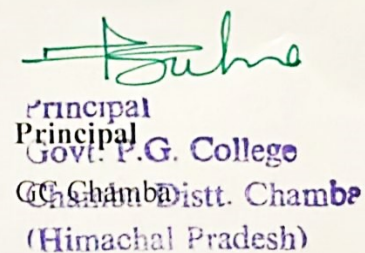 Principal
Principal
Govt. P.G. College
GC Chamba
Chamba Distt. Chamba
(Himachal Pradesh)